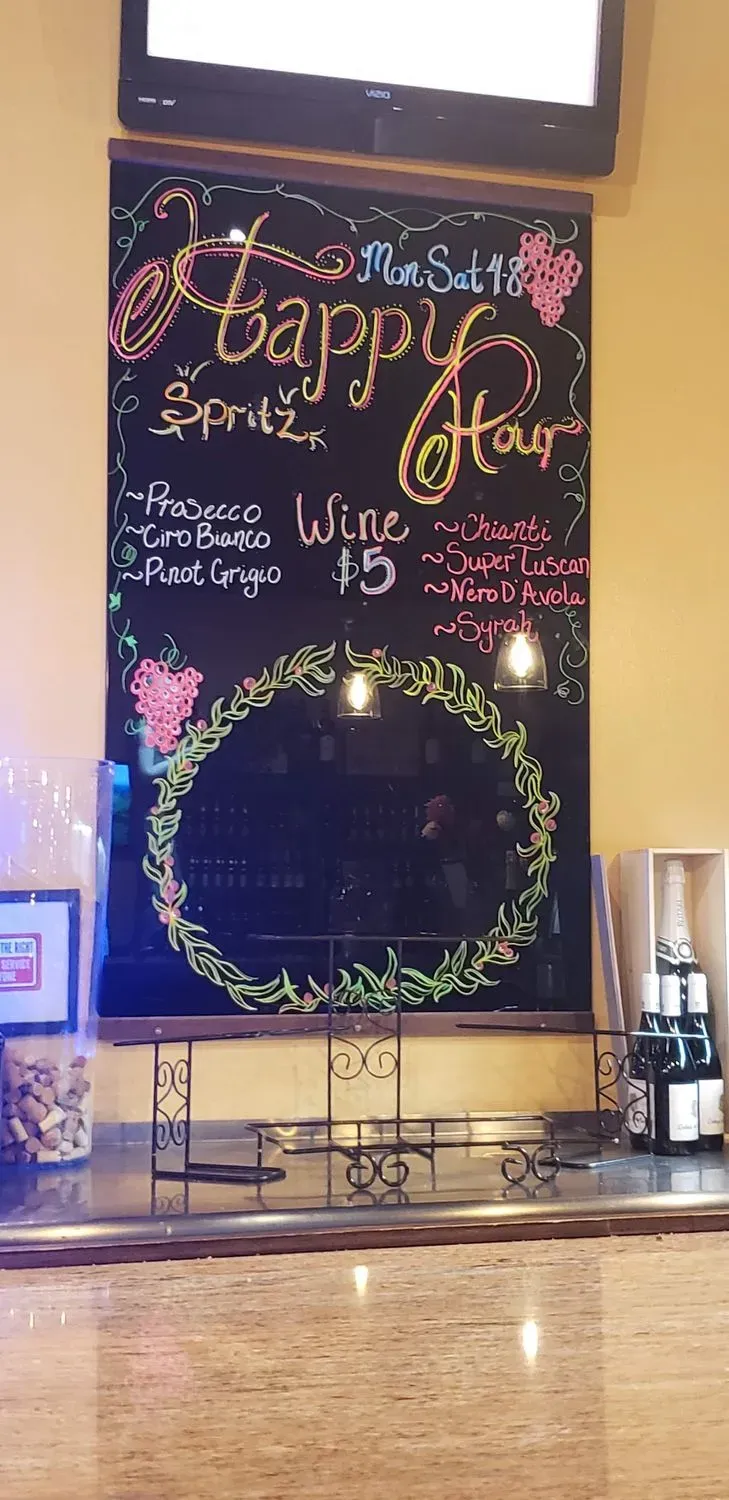 VIZIO
HDMI DIV
Mon-Sat 4-8
Happy
Hour
Spritz
Wine
$5
~Prosecco
~Ciro Bianco
~Pinot Grigio
~Chianti
~Super Tuscan
~Nero D'Avola
~Syrah
THE RIGHT
SERVICE